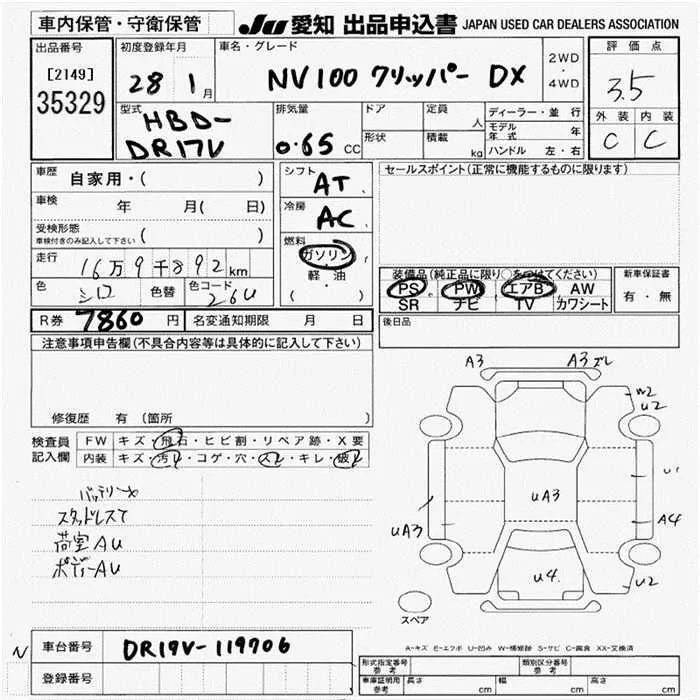 車内保管・守衛保管 JU 愛知 出品申込書 JAPAN USED CAR DEALERS ASSOCIATION
出品番号 初度登録年月 車名・グレード 2WD・4WD 評価点
[2149] 28 1月 NV100 クリッパー DX 3.5
35329
型式 HBD-DR17V 排気量 0.65 CC ドア 定員 人 ディーラー・並行 外装 内装
形状 積載 kg モデル年式 年 C C
ハンドル 左・右
車歴 自家用・( ) シフト AT セールスポイント(正常に機能するものに限ります)
車検 年 月( 日) 冷房 AC
受検形態 ( )
車検付きのみ記入して下さい
燃料 ガソリン
軽・油
( ・ )
走行 16万9千892km
色 シロ 色替 色コード 26U
装備品(純正品に限り○をつけてください) 新車保証書
PS PW エアB AW 有・無
SR ナビ TV カワシート
R券 7860円 名変通知期限 月 日 後日品
注意事項申告欄(不具合内容等は具体的に記入して下さい)
修復歴 有 〔箇所 〕
検査員記入欄 FW キズ・飛石・ヒビ割・リペア跡・X要
内装 キズ・汚レ・コゲ・穴・スレ・キレ・破レ
バッテリーX
スタッドレスT
荷室AU
ボディーAU
A3 A3ズレ
W2
U2
U1
UA3
UA3 A4
U4
U2
スペア
A-キズ E-エクボ U-凹み W-補修跡 S-サビ C-腐食 XX-交換済
N 車台番号 DR17V-119706
登録番号
形式指定番号 参考 類別区分番号 参考
車庫証明用 参考 長さ cm 幅 cm 高さ cm